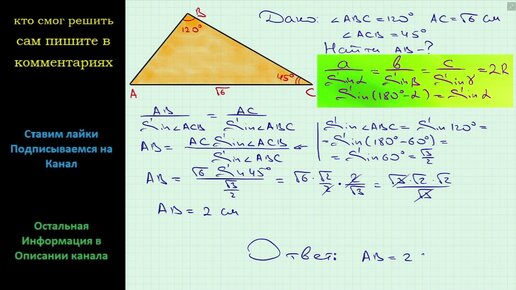 кто смог решить
сам пишите в
комментариях
Ставим лайки
Подписываемся на
Канал
Остальная
Информация в
Описании канала
B
120°
A
√6
45°
C
Дано: ∠ABC=120° AC=√6 см
∠ACB=45°
Найти AB-?
a/Sinα = b/Sinβ = c/Sinγ = 2R
Sin(180°-α)=Sinα
AB/Sin∠ACB = AC/Sin∠ABC
AB = AC Sin∠ACB / Sin∠ABC
AB = √6 Sin45° / (√3/2) = √6·√2/2·2/√3 = √3·√2·√2/√3
AB = 2 см
Sin∠ABC = Sin120° =
= Sin(180°-60°) =
= Sin60° = √3/2
Ответ: AB = 2